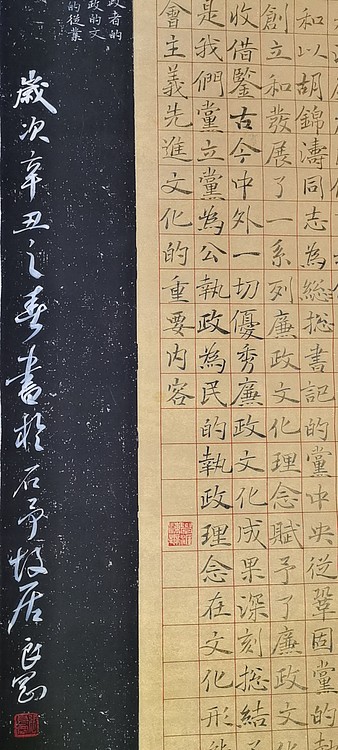 和以胡錦濤同志為総書記的黨中央從鞏固黨的
創立和發展了一系列廉政文化理念賦予了廉政文
收借鑒古今中外一切優秀廉政文化成果深刻総結
是我們黨立黨為公執政為民的執政理念在文化形
會主義先進文化的重要内容
政者的
政的文
的從業
歲次辛丑之春書於石予故居